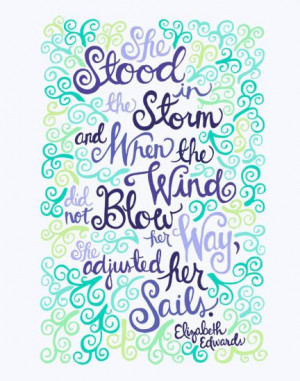 She
Stood in
the Storm
and When the
Wind
did not Blow
her Way,
She adjusted her
Sails.
Elizabeth
Edwards